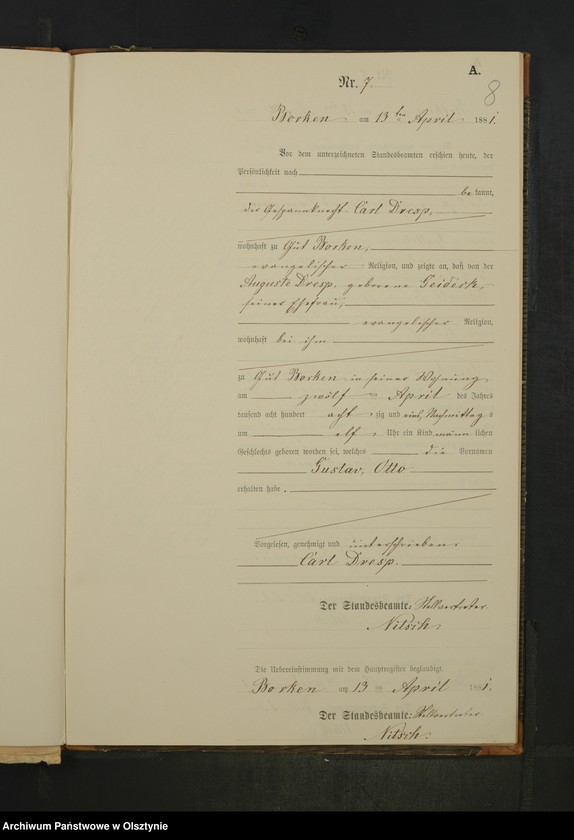 A.
8
Nr. 7.
Borken am 13ten April 1881.
Vor dem unterzeichneten Standesbeamten erschien heute, der
Persönlichkeit nach
bekannt,
der Gespannknecht Carl Dresp,
wohnhaft zu Gut Borken,
evangelischer Religion, und zeigte an, daß von der
Auguste Dresp, geborene Geideck,
seiner Ehefrau,
evangelischer Religion,
wohnhaft bei ihm
zu Gut Borken in seiner Wohnung
am zwölf ten April des Jahres
tausend acht hundert acht zig und eins, Nachmittags
um elf Uhr ein Kind männlichen
Geschlechts geboren worden sei, welches die Vornamen
Gustav, Otto
erhalten habe.
Vorgelesen, genehmigt und unterschrieben.
Carl Dresp.
Der Standesbeamte: Stellvertreter
Nitsch.
Die Uebereinstimmung mit dem Hauptregister beglaubigt.
Borken am 13 ten April 1881.
Der Standesbeamte: Stellvertreter
Nitsch.
Archiwum Państwowe w Olsztynie